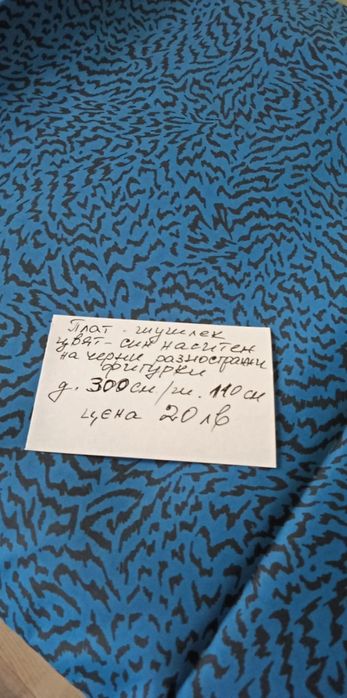 Плат - шушлек
цвят - син наситен
на черни разностранни
фигурки
д. 300 см/ш. 110 см
цена 20 лв